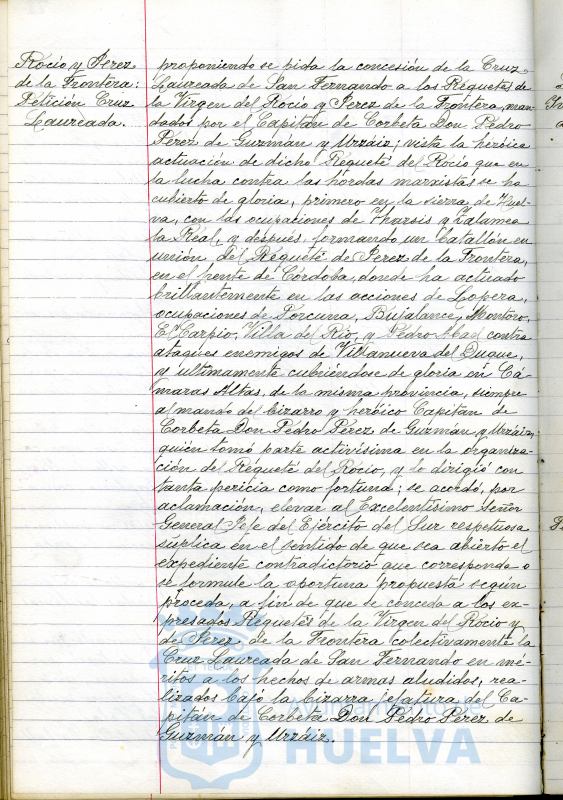 Rocío y Jerez
de la Frontera:
Petición Cruz
Laureada.
proponiendo se pida la concesión de la Cruz
Laureada de San Fernando a los Requetés de
la Virgen del Rocío y Jerez de la Frontera, man-
dados por el Capitán de Corbeta Don Pedro
Pérez de Guzmán y Urzáiz; vista la heróica
actuación de dicho Requeté del Rocío, que en
la lucha contra las hordas marxistas se ha
cubierto de gloria, primero en la sierra de Huel-
va, con las ocupaciones de Tharsis y Zalamea
la Real, y después, formando un batallón en
unión del Requeté de Jerez de la Frontera,
en el frente de Córdoba, donde ha actuado
brillantemente en las acciones de Lopera,
ocupaciones de Porcuna, Bujalance, Montoro,
El Carpio, Villa del Río, y Pedro Abad contra
ataques enemigos de Villanueva del Duque,
y ultimamente cubriéndose de gloria en Cá-
maras Altas, de la misma provincia, siempre
al mando del bizarro y heróico Capitán de
Corbeta Don Pedro Pérez de Guzmán y Urzáiz,
quién tomó parte activísima en la organiza-
ción del Requeté del Rocío, y lo dirigió con
tanta pericia como fortuna; se acordó, por
aclamación, elevar al Excelentísimo Señor
General Jefe del Ejército del Sur respetuosa
súplica en el sentido de que sea abierto el
expediente contradictorio que corresponda o
se formule la oportuna propuesta según
proceda, a fin de que se conceda a los ex-
presados Requetés de la Virgen del Rocío y
de Jerez de la Frontera colectivamente la
Cruz Laureada de San Fernando en mé-
ritos a los hechos de armas aludidos, rea-
lizados bajo la bizarra jefatura del Ca-
pitán de Corbeta Don Pedro Pérez de
Guzmán y Urzáiz.
HUELVA